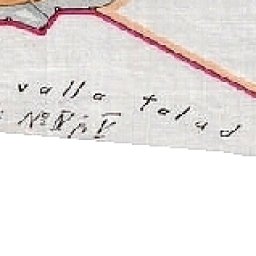 valla talad
№ IV ja V